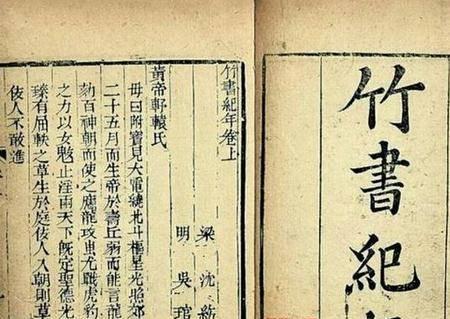 竹書紀
竹書紀年卷上
梁 沈約
明 吳琯
黃帝軒轅氏
母曰附寶見大電繞北斗樞星光照郊
二十五月而生帝於壽丘弱而能言龍
劾百神朝而使之應龍攻蚩尤戰虎豹
之力以女魃止淫雨天下既定聖德光
臻有屈軼之草生於庭佞人入朝則草
佞人不敢進